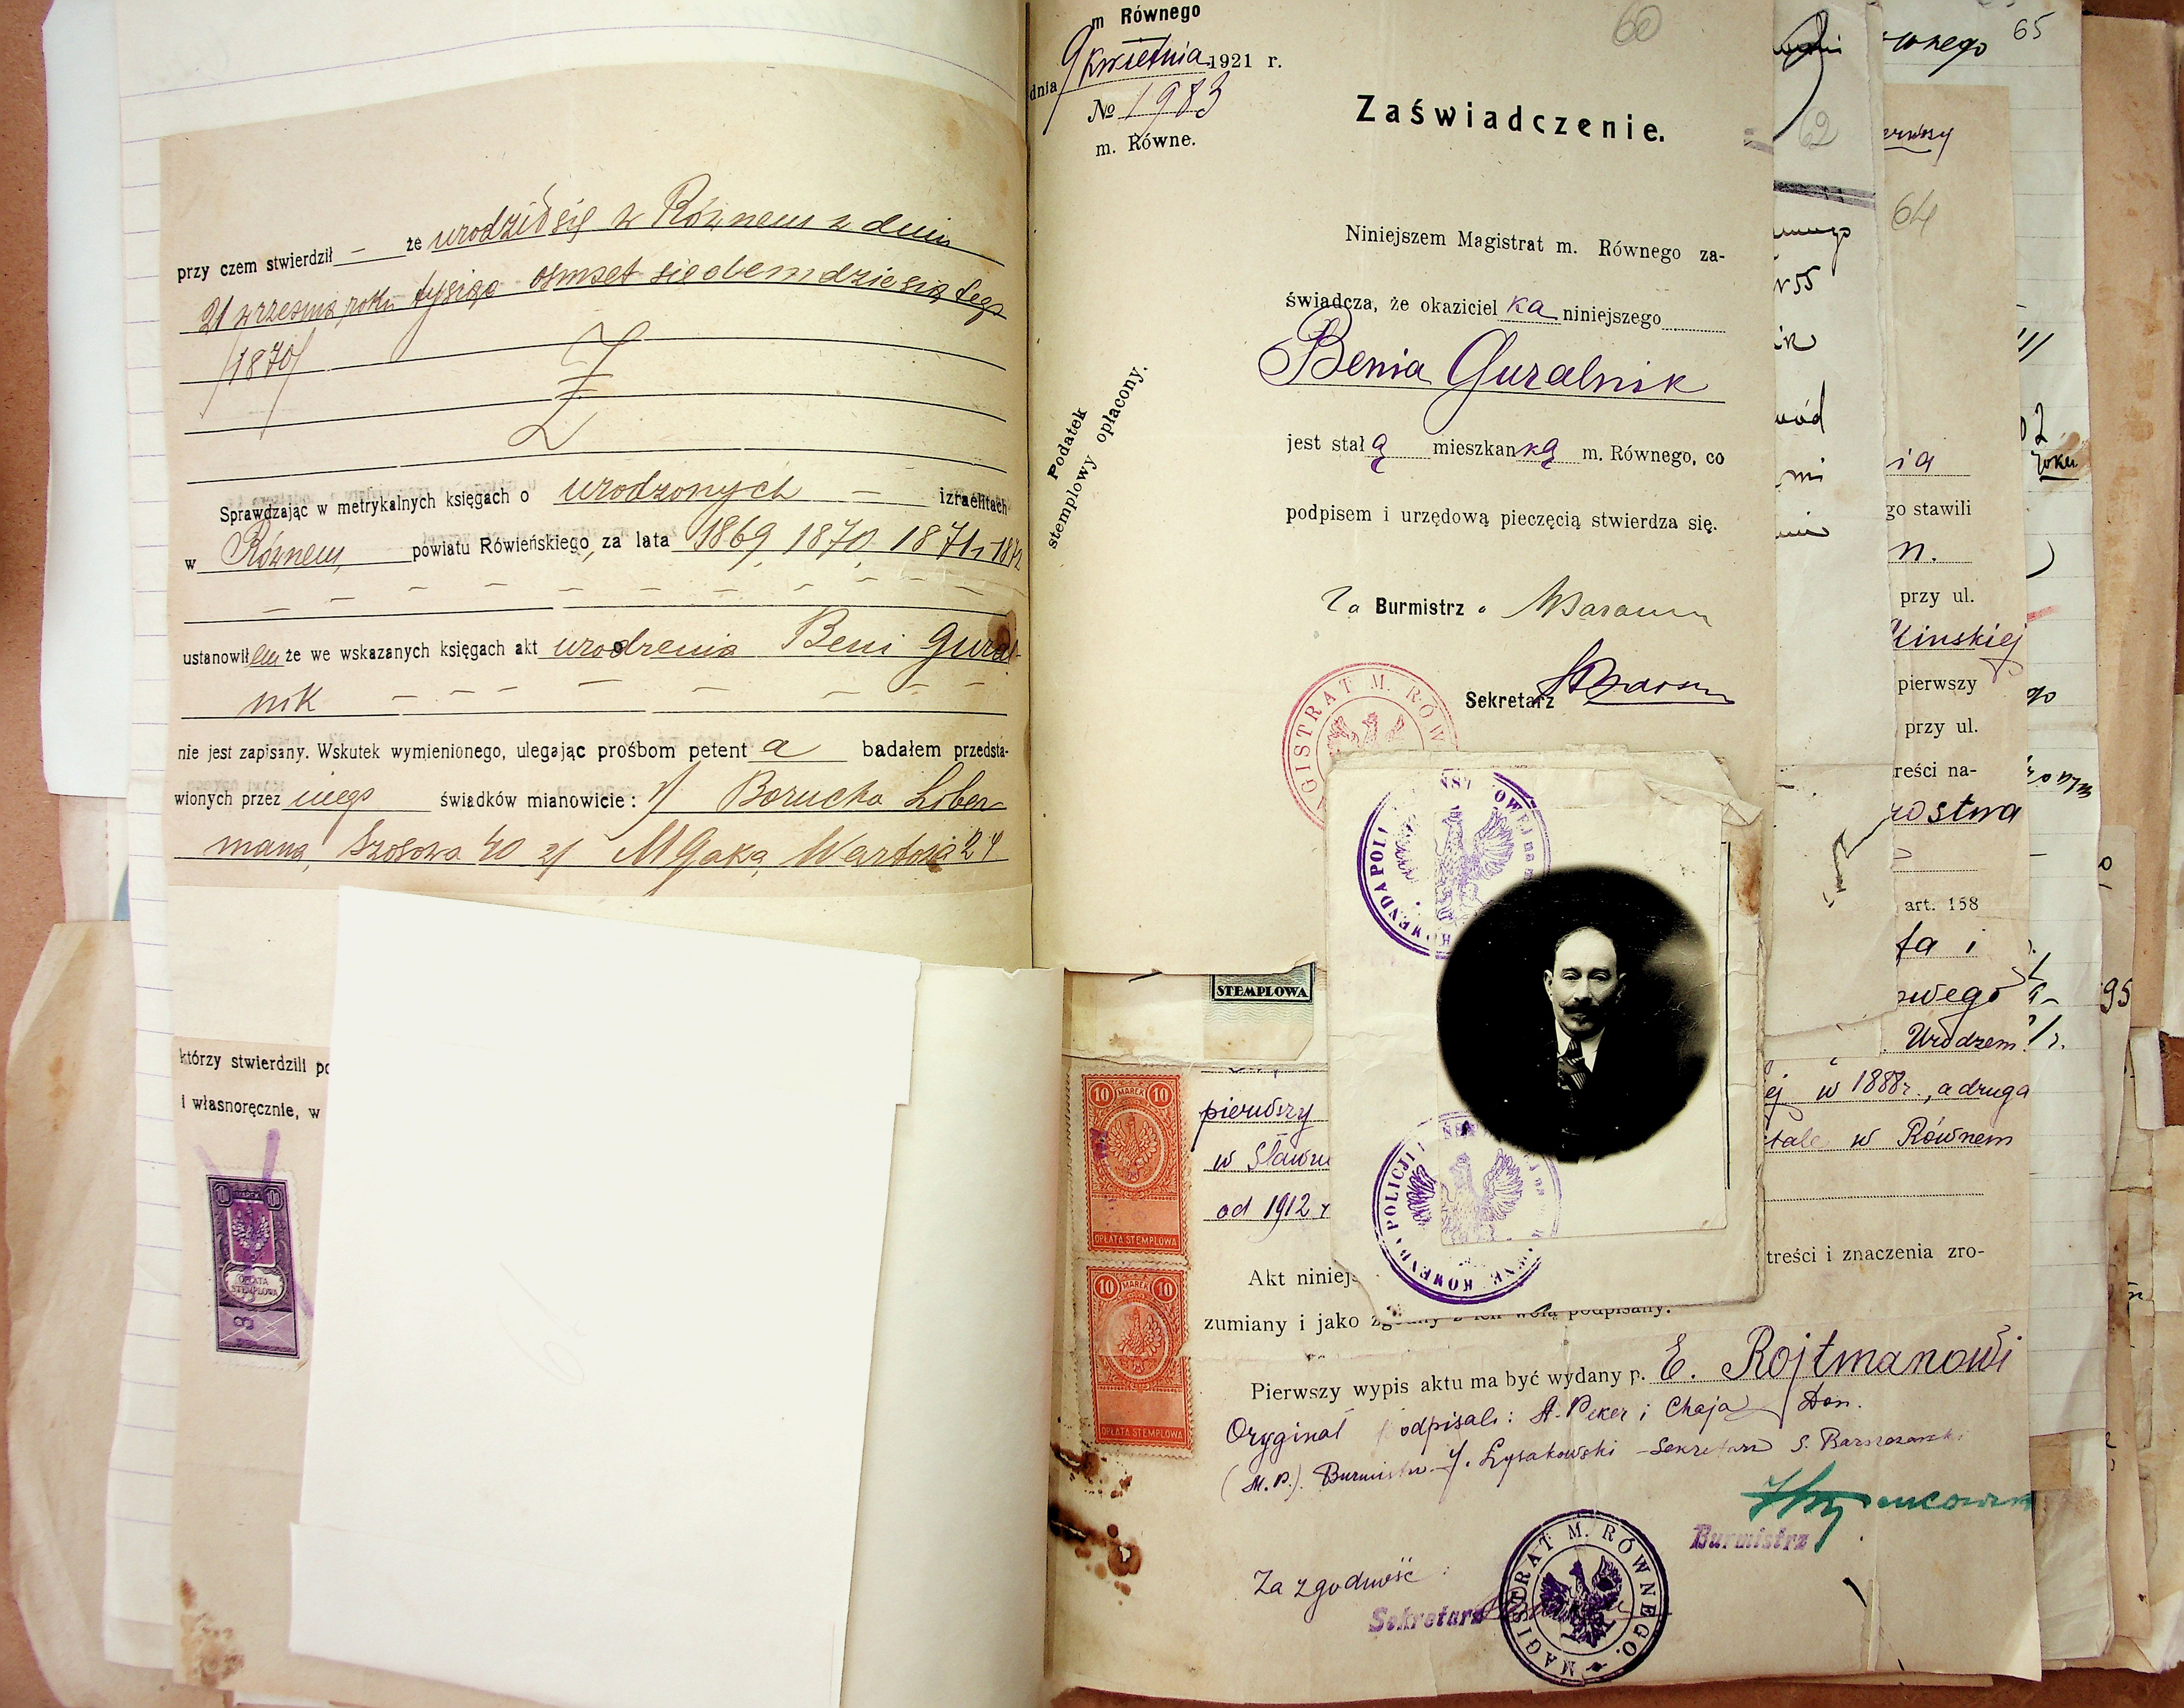 przy czem stwierdził — że urodził się w Równem w dniu
21 września roku tysiąc osmset siedemdziesiątego
/1870/
Sprawdzając w metrykalnych księgach o urodzonych — izraelitach
w Równem, powiatu Rówieńskiego, za lata 1869, 1870, 1871, 1872
ustanowiłem że we wskazanych księgach akt urodzenia Beni Gural-
nik
nie jest zapisany. Wskutek wymienionego, ulegając prośbom petenta badałem przedsta-
wionych przez niego świadków mianowicie: 1/ Borucha Liber-
mana, Szosowa 40 2/ M Gaka, Wartowa 24
którzy stwierdzili po
i własnoręcznie, w
100 MAREK 100
OPŁATA
STEMPLOWA
m Równego
dnia 9 kwietnia 1921 r.
№ 1983
m. Równe.
60
Zaświadczenie.
Podatek
stemplowy opłacony.
Niniejszem Magistrat m. Równego za-
świadcza, że okazicielka niniejszego
Benia Guralnik
jest stałą mieszkanką m. Równego, co
podpisem i urzędową pieczęcią stwierdza się.
Za Burmistrz
Sekretarz
MAGISTRAT M. RÓW
KOMENDA POLI
OWEJ na
KOMENDA POLICJI
STEMPLOWA
10 MAREK 10
OPŁATA STEMPLOWA
10 MAREK 10
OPŁATA STEMPLOWA
pierwszy
w Sławu
od 1912 r
ej w 1888r., a druga
stale w Równem
Akt niniejs
treści i znaczenia zro-
zumiany i jako zgodny z ich wolą podpisany.
Pierwszy wypis aktu ma być wydany p. E. Rojtmanowi
Oryginał podpisali: A. Peker i Chaja Don.
(M.P.) Burmistrz J. Łysakowski - Sekretarz S.
Burmistrz
Za zgodność:
Sekretarz
MAGISTRAT M. RÓWNEGO.
62
wód
64
65
go stawili
n.
przy ul.
pierwszy
przy ul.
reści na-
rostwa
art. 158
ta i
owego
Urodzem
roku
95